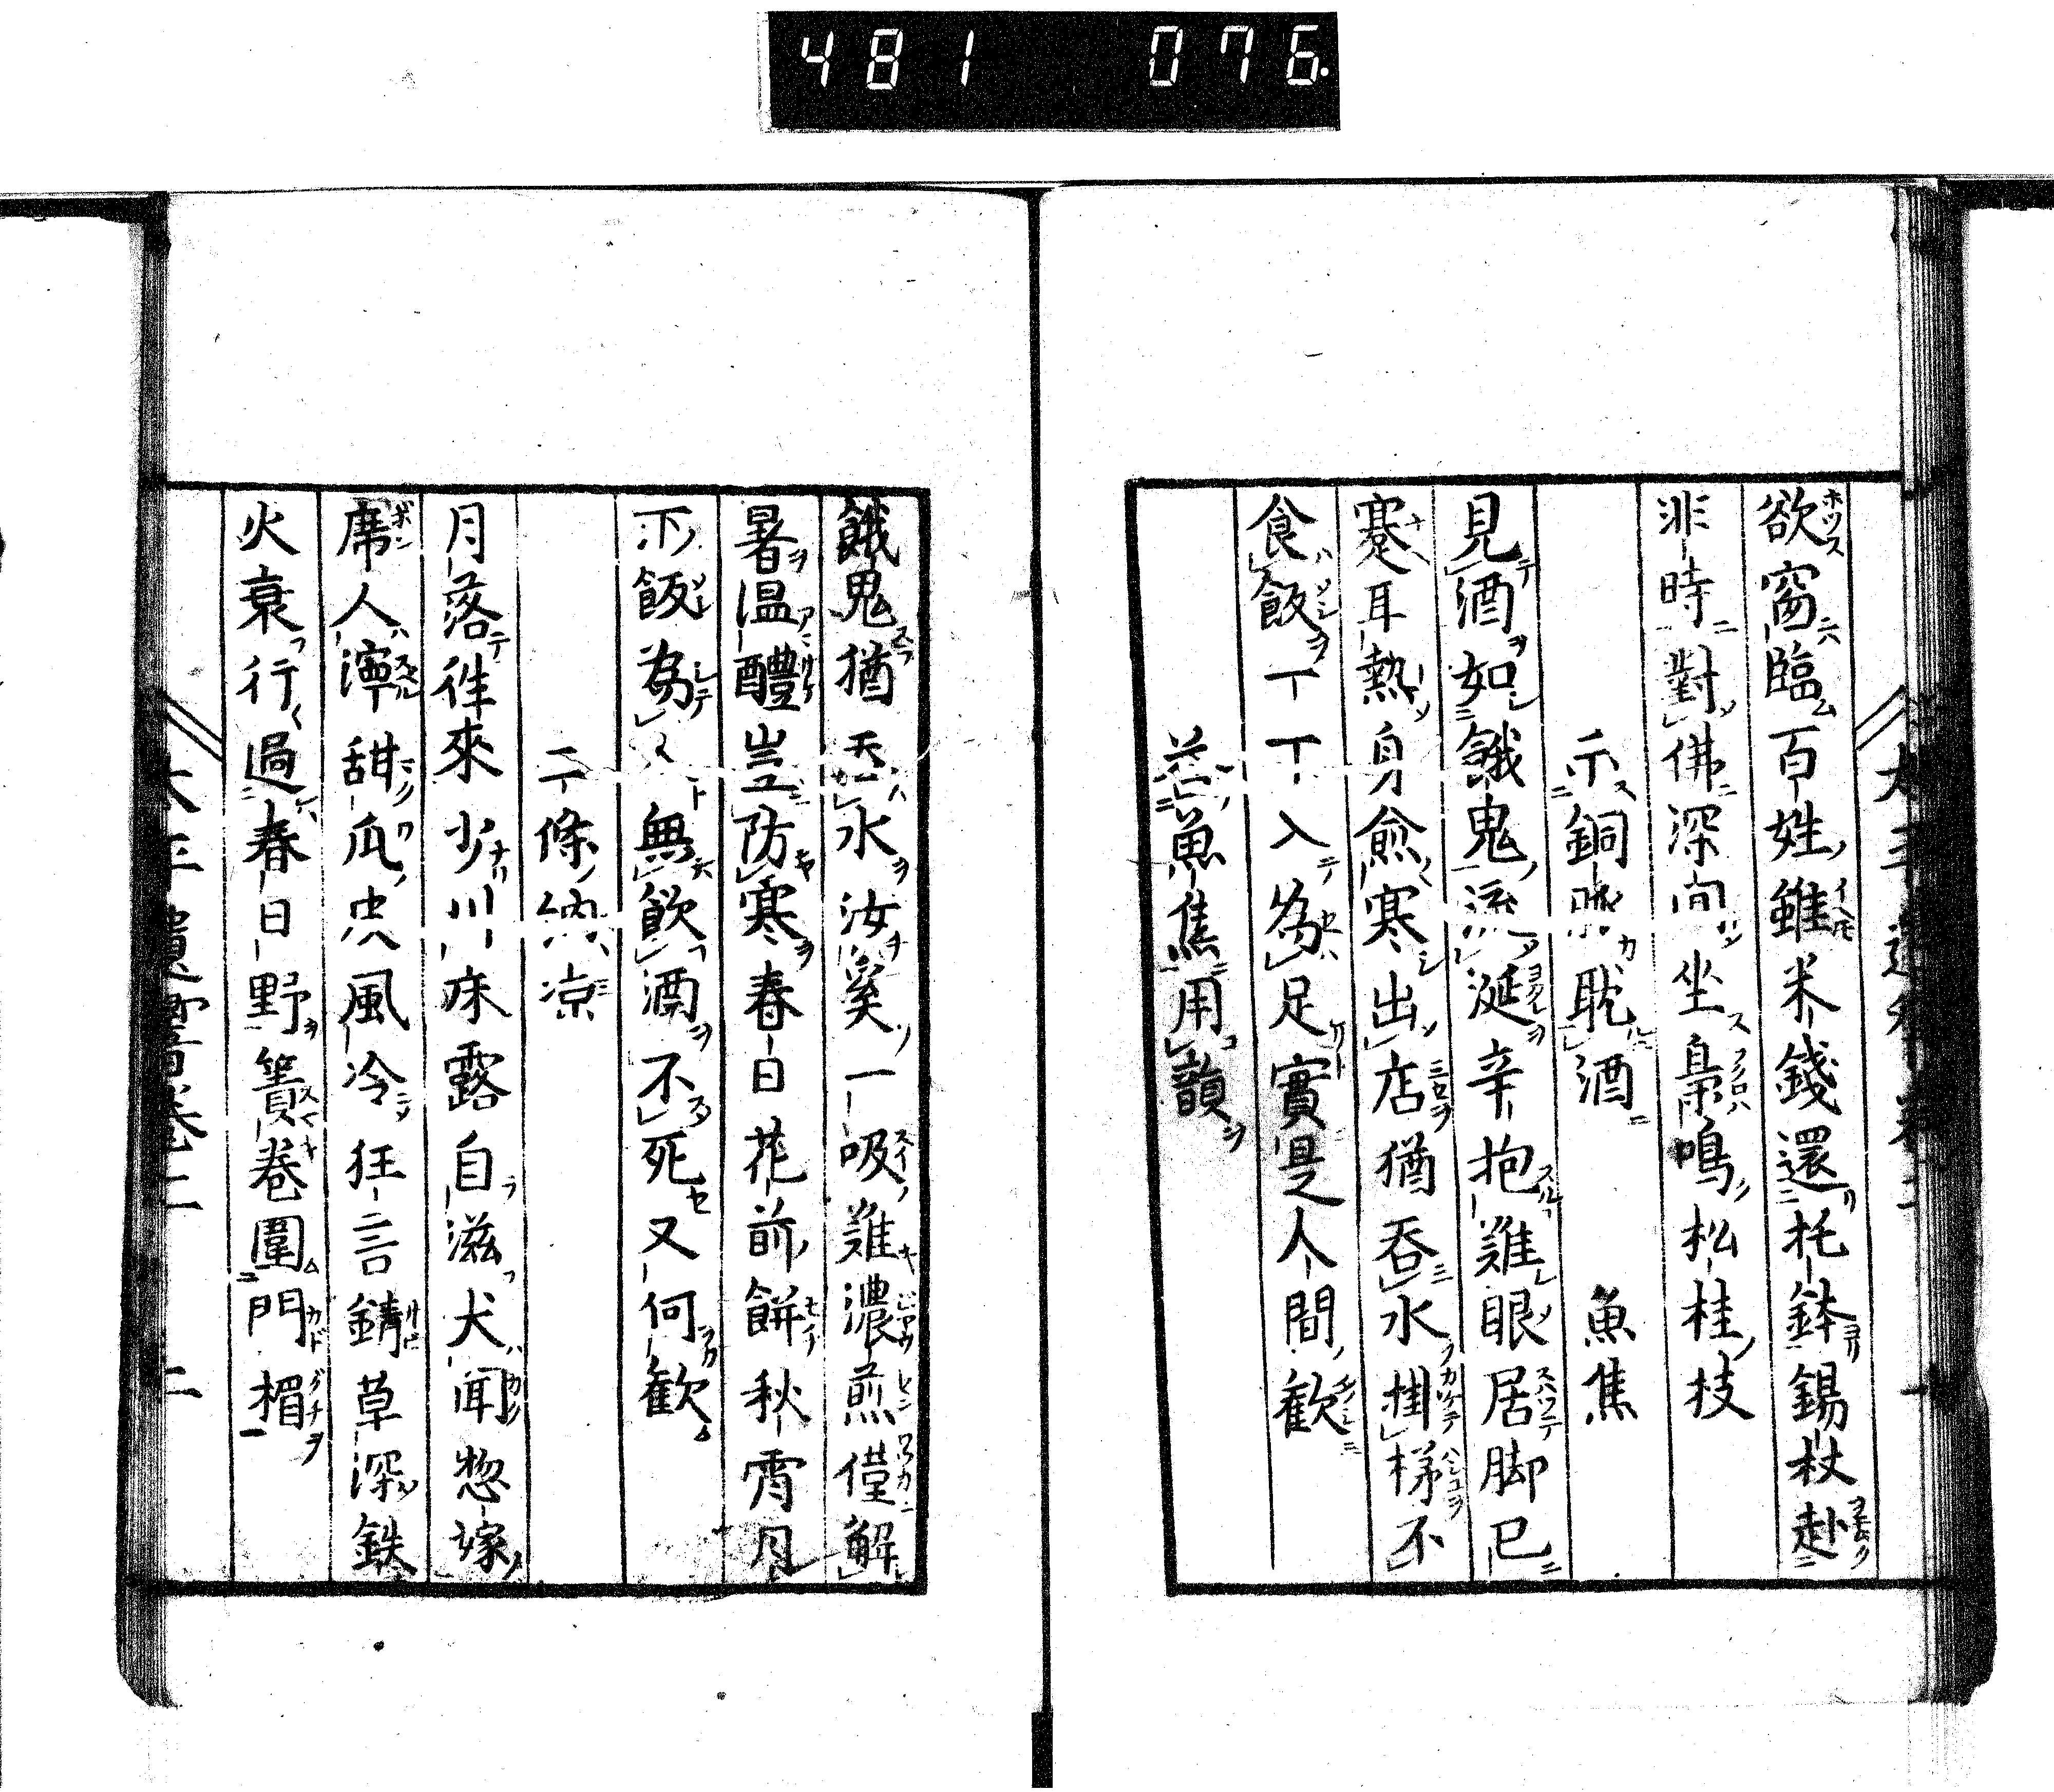 481 076.
欲窗臨百姓雖米錢還托鉢錫杖赴
非時對佛深向坐梟鳴松桂枝
示銅脈耽酒 魚焦
見酒如餓鬼流涎辛抱難眼居脚已
蹇耳熱身愈寒出店猶呑水掛梯不
食飯一丁丁入為足實是人間歡
並魚焦用韻
餓鬼猶呑水汝奚一吸難濃煎僅解
暑温醴豈防寒春日花前餅秋宵月
下飯為人無飲酒不死又何歡
二條納凉
月落徃來少川床露自滋犬聞惣嫁
席人濘甜瓜忠風冷狂言錆草深鉄
火衰行過春日野簀巻圍門楣
太平遺響卷二 二